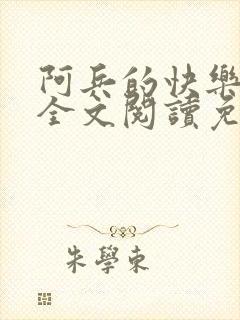 阿兵的快樂
全文閱讀免
朱學東